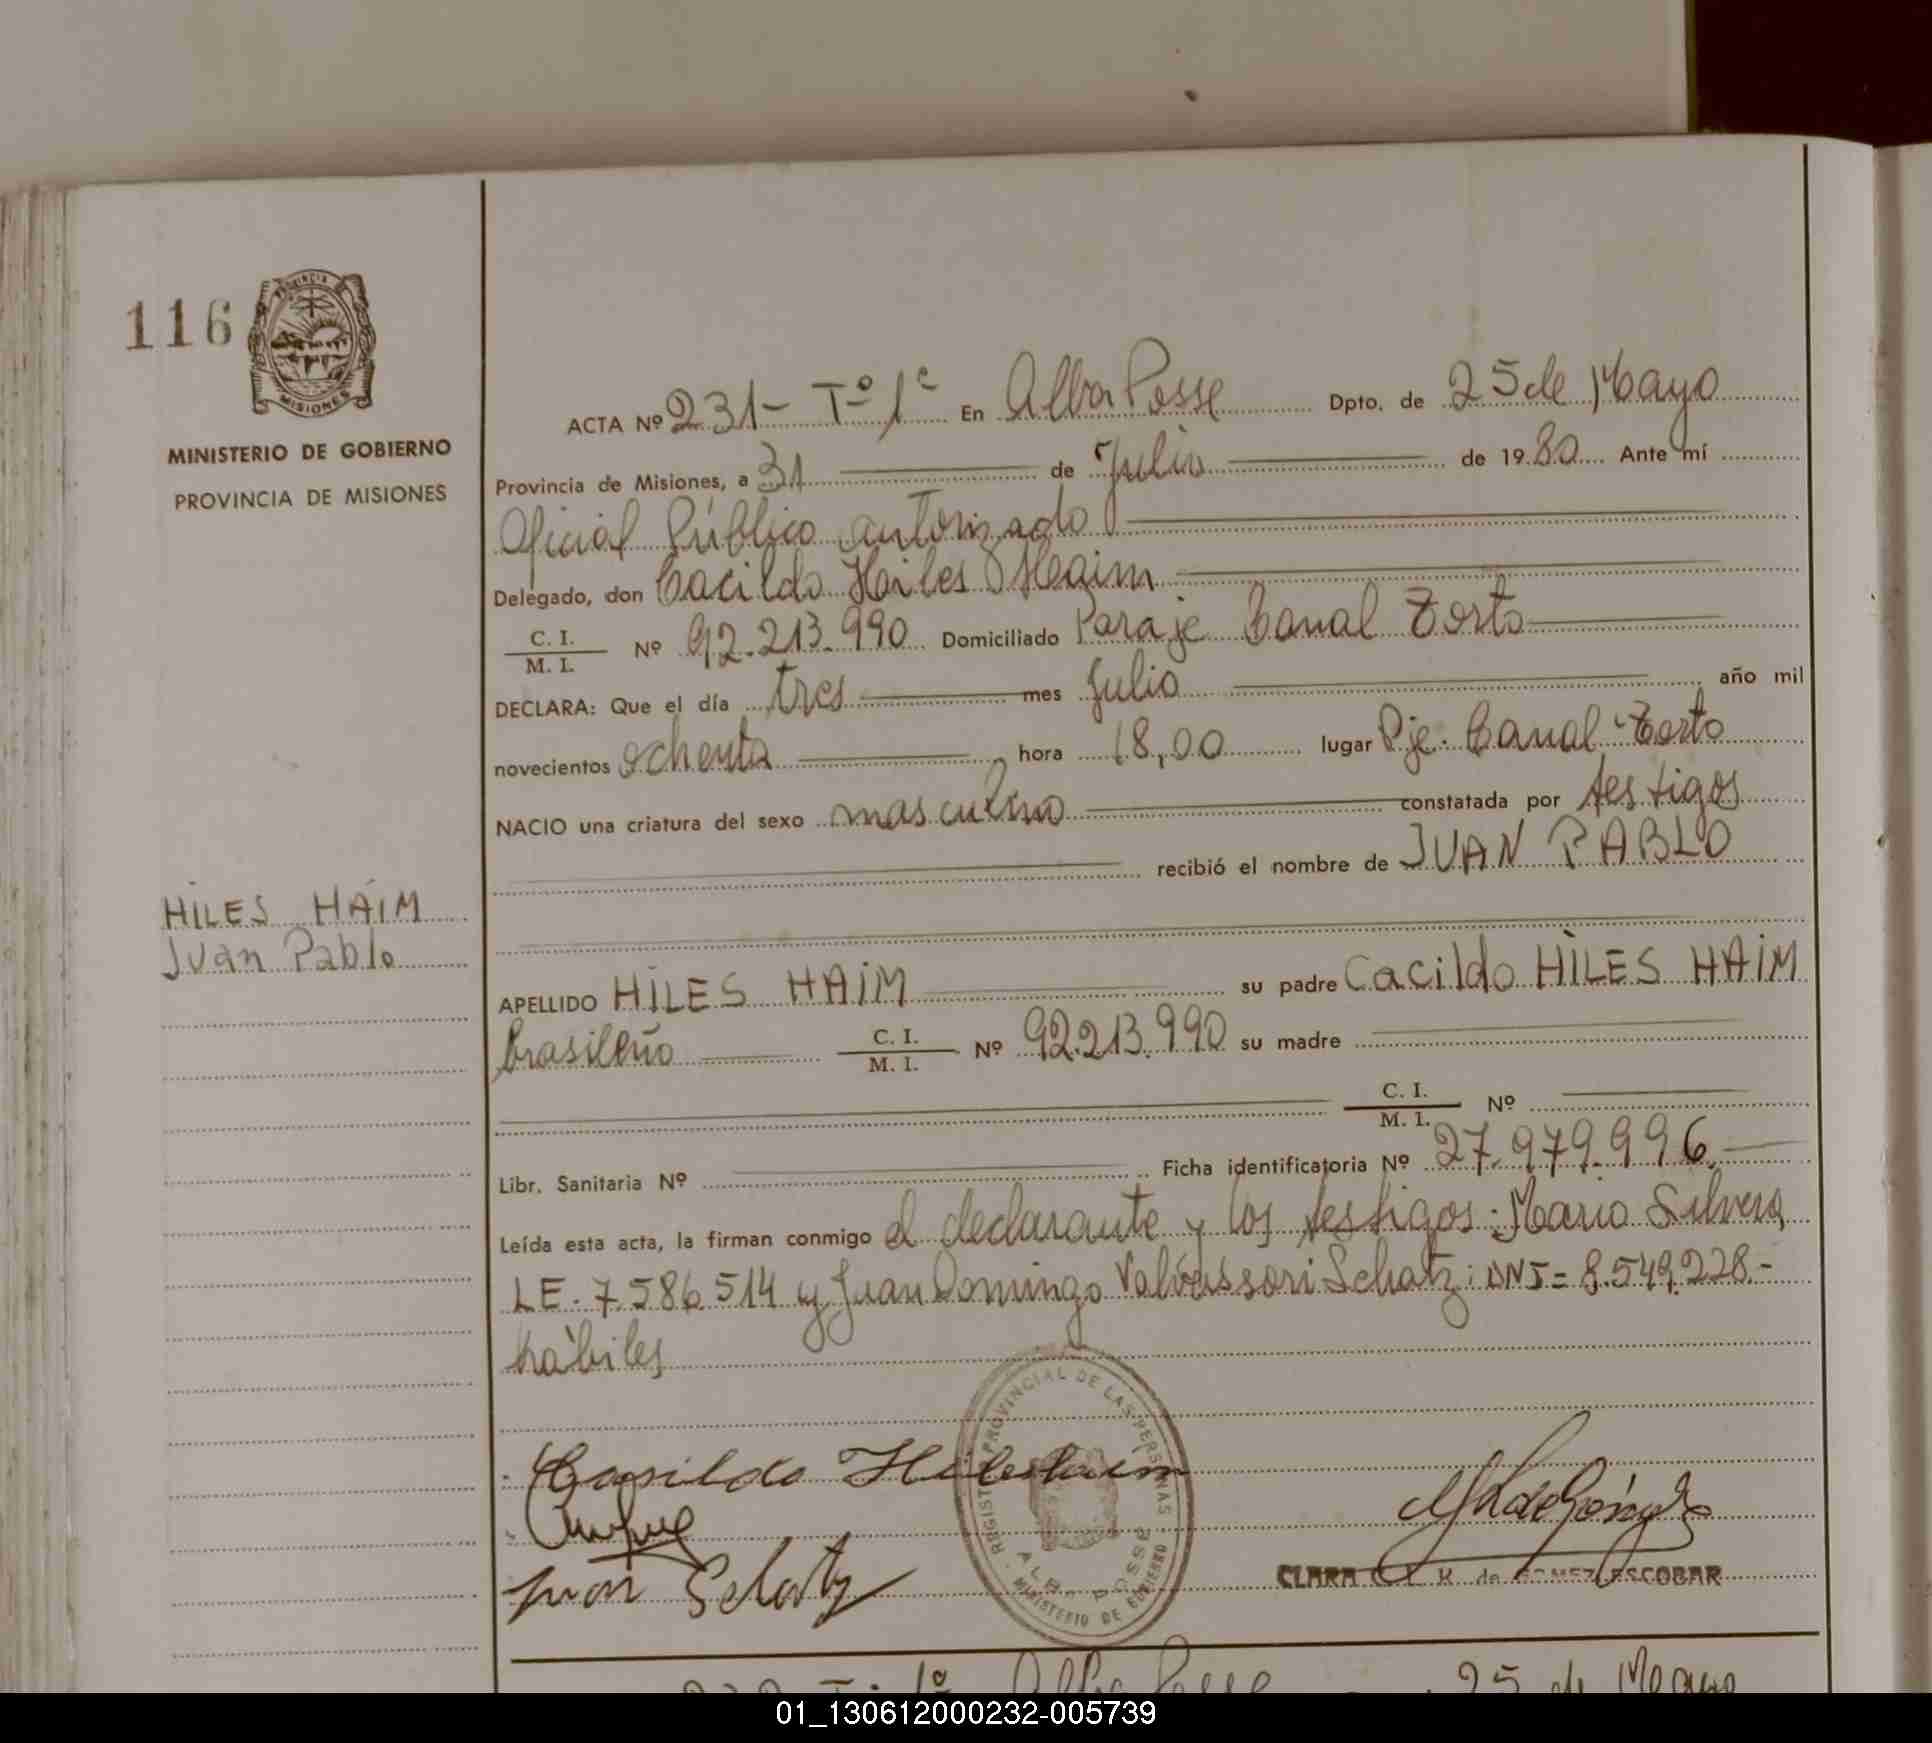 116
PROVINCIA
MISIONES
MINISTERIO DE GOBIERNO
PROVINCIA DE MISIONES
HILES HAIM
Juan Pablo
ACTA Nº 231- Tº 1º En Alba Posse Dpto. de 25 de Mayo
Provincia de Misiones, a 31 de Julio de 1980 Ante mí
Oficial Público autorizado
Delegado, don Cacildo Hiles Haim
C. I.
M. I. Nº 92.213.990 Domiciliado Paraje Canal Torto
DECLARA: Que el día tres mes Julio año mil
novecientos ochenta hora 18,00 lugar Pje. Canal Torto
NACIO una criatura del sexo masculino constatada por testigos
recibió el nombre de JUAN PABLO
APELLIDO HILES HAIM su padre Cacildo HILES HAIM
brasileño C. I. M. I. Nº 92.213.990 su madre
C. I.
M. I. Nº
Libr. Sanitaria Nº Ficha identificatoria Nº 27.979.996.
Leída esta acta, la firman conmigo el declarante y los testigos: Mario Silvera
LE. 7.586.514 y Juan Domingo Valvassori Schatz: DNI= 8.549.228.-
hábiles
Casildo Hileshaim
Juan Schatz
REGISTRO PROVINCIAL DE LAS PERSONAS
ALBA POSSE
MINISTERIO DE GOBIERNO
CLARA K. de GOMEZ ESCOBAR
232 Tº 1º Alba Posse 25 de Mayo
01_130612000232-005739